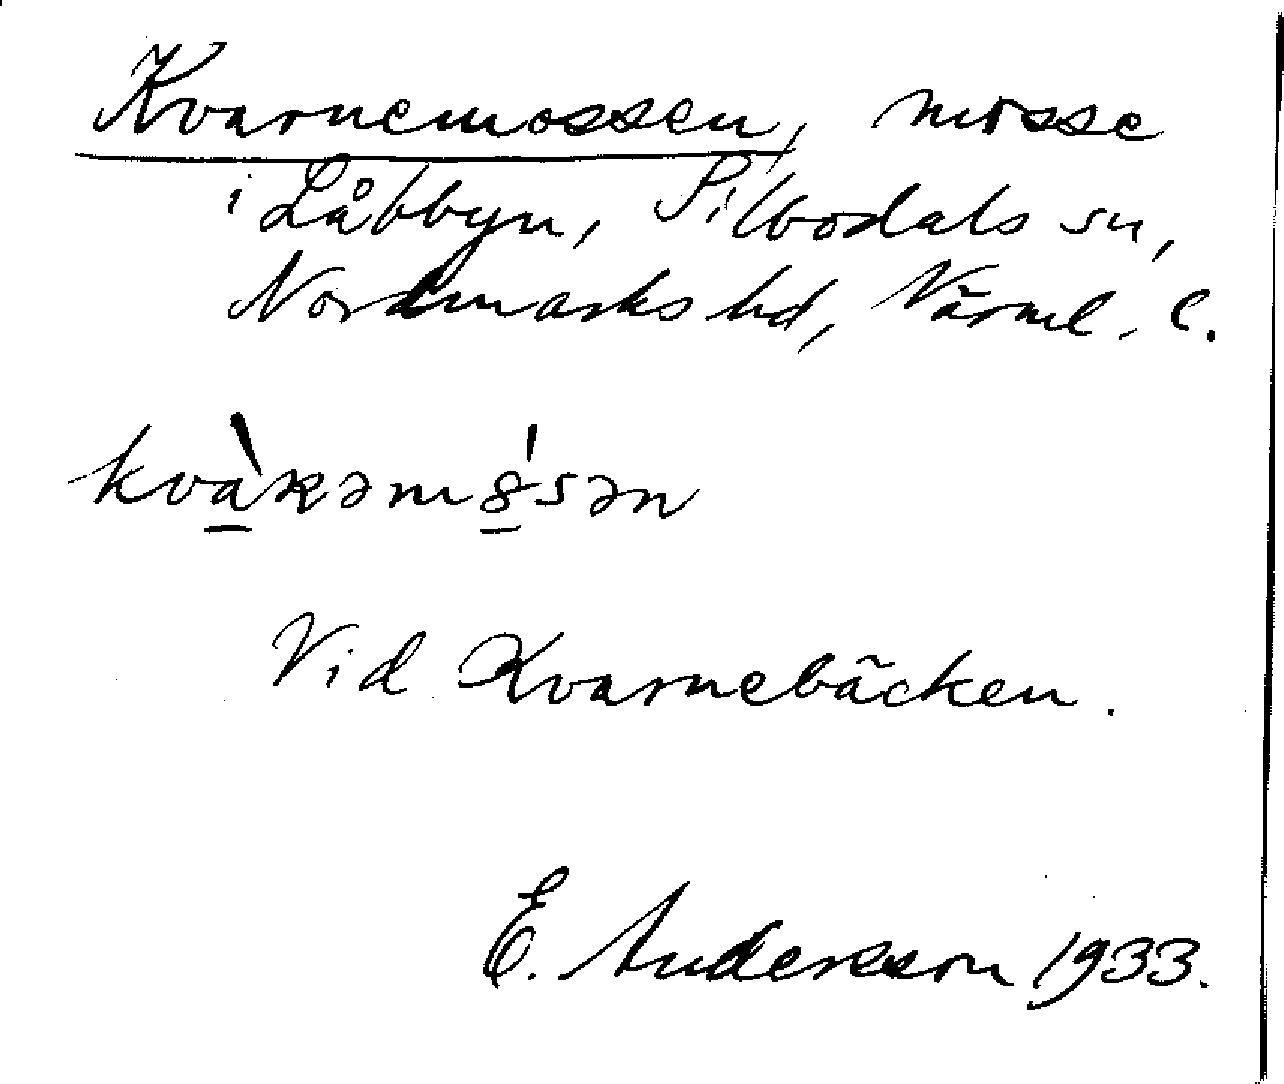 Kvarnemossen, mosse
i Låbbyn, Silbodals sn,
Nordmarks hd, Värml. l.
Vid Kvarnebäcken.
E. Andersson 1933.